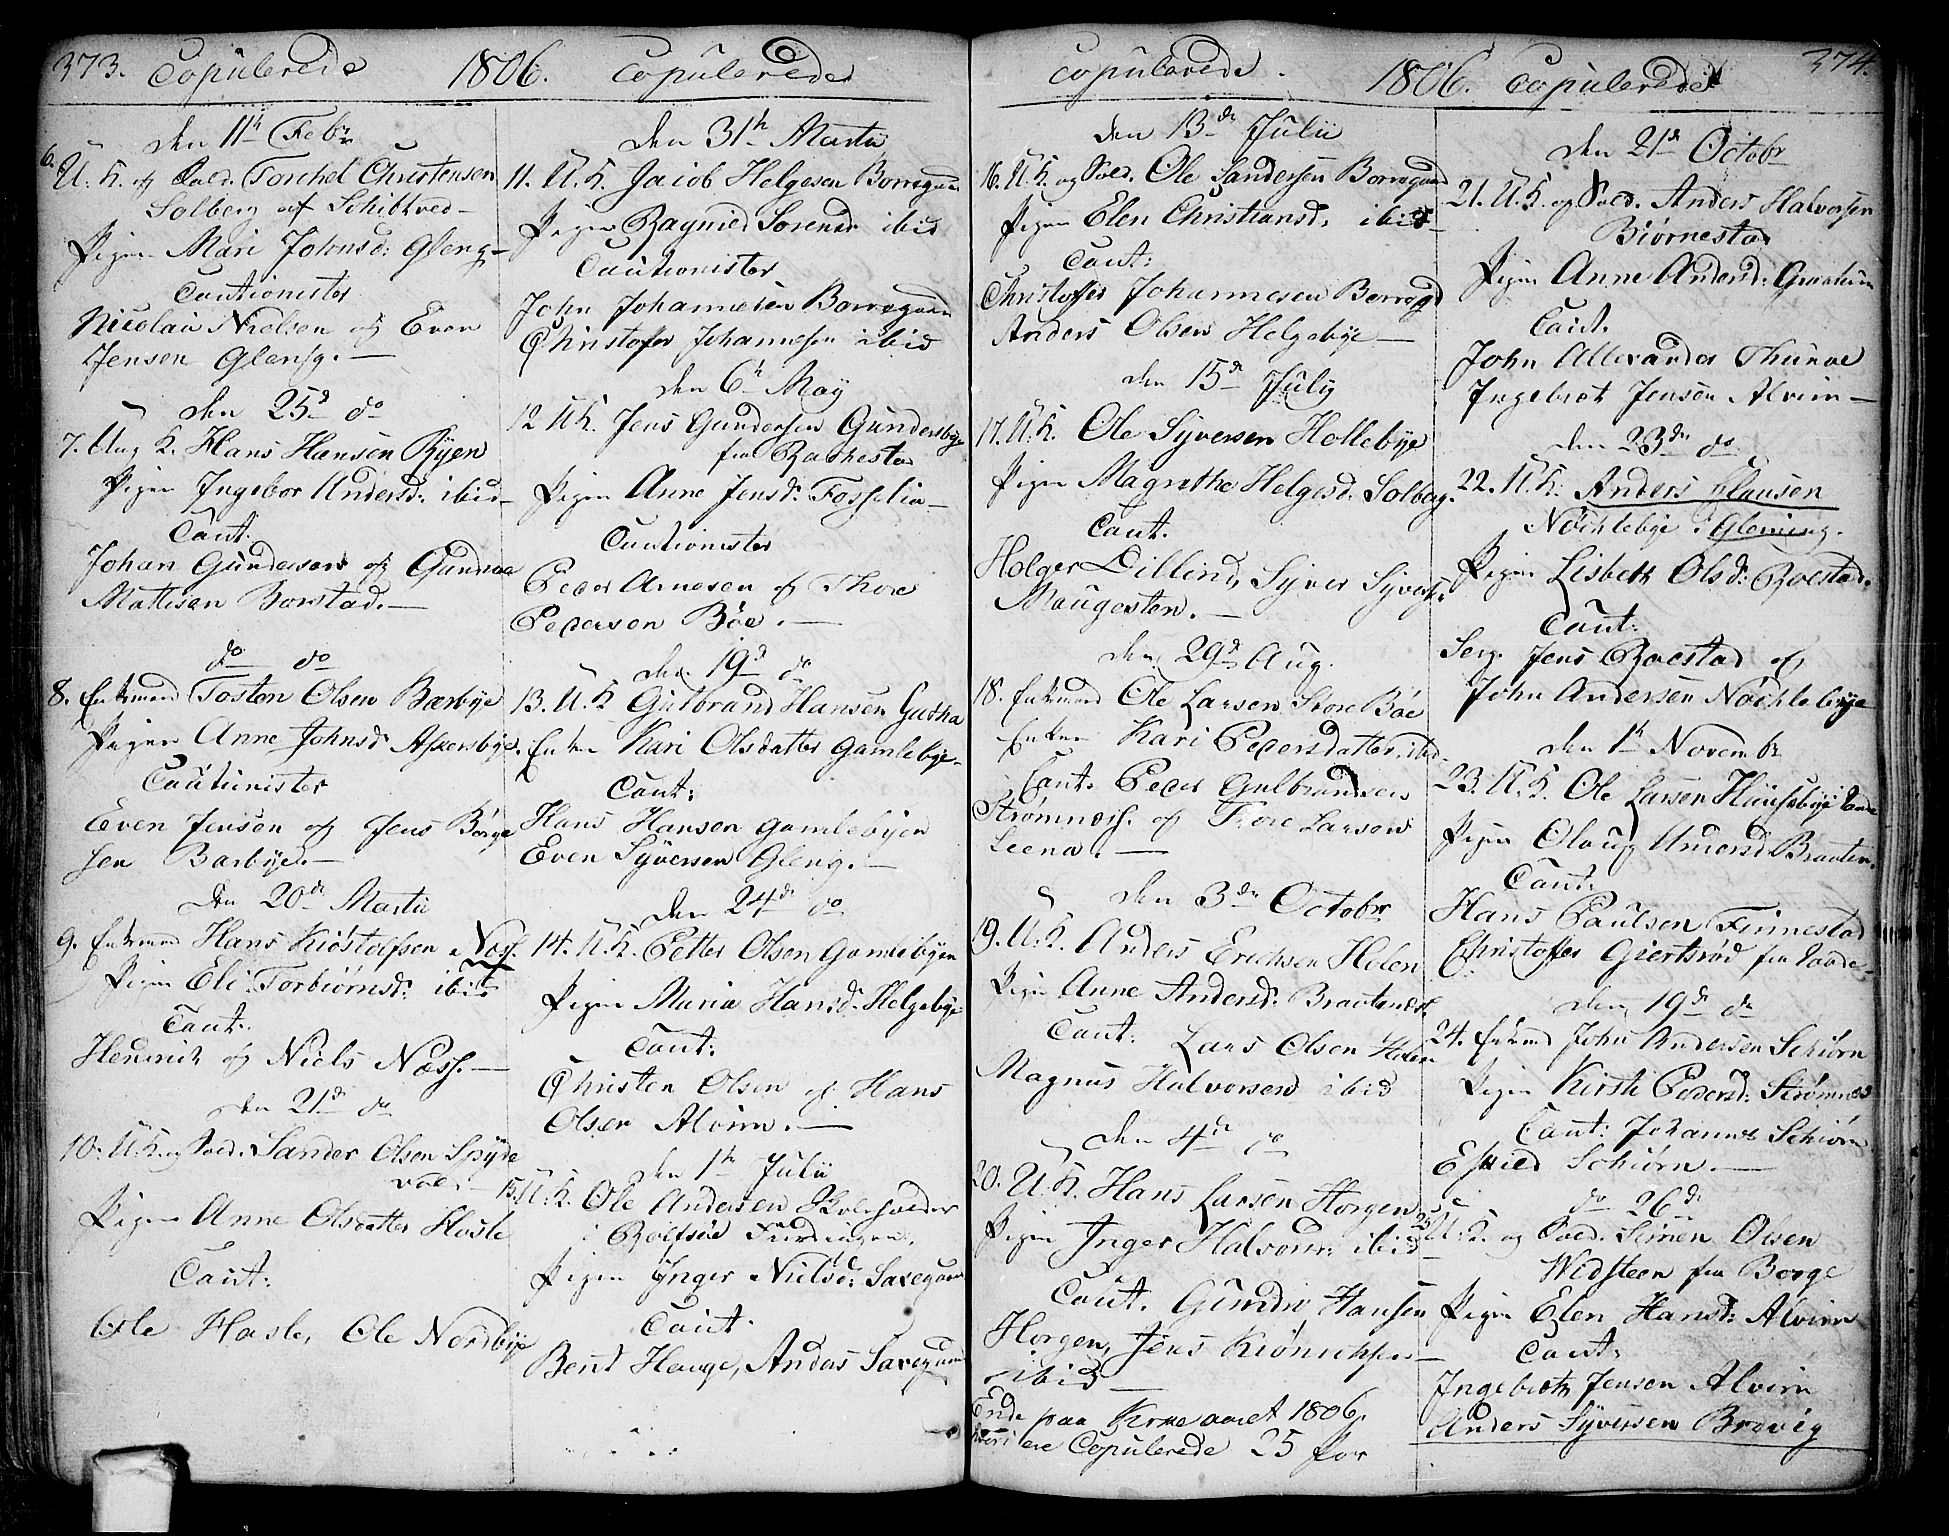 373. Copulerede 1806. Copulerede
den 11th Febr
6. U. K. og Sold. Torchel Christensen
Solberg af Schibtved
Pigen Mari Johnsd: Gleng
Cautionister
Nicolai Nielsen og Even
Jensen Gleng.
den 25d do
7. Ung K. Hans Hansen Ryen
Pigen Ingebor Andersd: ibid
Caut.
Johan Gundersen og Gunder
Mattisen Borstad.
do do
8. Enkemand Tosten Olsen Barbye
Pigen Anne Johnsd: Askersbye
Cautionister
Even Jensen og Jens Børge
sen Barbye.
Den 20de Martii
9. Enkemand Hans Kiøstolfsen Næss.
Pigen Eli Torbiørnsd: ibid
Caut.
Hendrich og Niels Næss.
den 21de do
10. U. K. og Sold. Sander Olsen Spyde
vold
Pigen Anne Olsdatter Hasle
Caut:
Ole Hasle, Ole Nordbye
den 31th Martii
11. U. K. Jacob Helgesen Borregaard
Pigen Ragnild Sørensd ibid
Cautionister
John Johannesen Borregaard
Christofer Johannesen ibid
den 6th May
12 U K. Jens Gundersen Gundersbye
fra Rachestad
Pigen Anne Jensd: Fosselia
Cautionister
Peder Arnesen og Thore
Pedersen Bøe.
den 19d do
13. U. K Gulbrand Hansen Gutha
Enken Kari Olsdatter Gamlebye
Caut:
Hans Hansen Gamlebyen
Even Syversen Gleng.
den 24de do
14. U. K. Petter Olsen Gamlebyen
Pigen Maria Hansd: Helgebye
Caut:
Christen Olsen og Hans
Olsen Alvim.
den 1th Julii
15. U. K. Ole Andersen Skoleholder
i Rolfsøe Fierdingen,
Pigen Ynger Nielsd: Saxegaard
Caut.
Bent Hauge, Andas Saxegaard
Copulerede. 1806. Copulerede 374.
den 13de Julii
16. U. K. og Sold. Ole Sandersen Borregaard
Pigen Elen Christiansd: ibid
Caut:
Christoffer Johannesen Borregd
Anders Olsen Helgebye
den 15de July
17. U. K. Ole Syversen Hollebye
Pigen Magrethe Helgesd. Solberg.
Caut.
Holger Dillind, Syver Syvers:
Maugesten.
den 29d Aug.
18. Enkemand Ole Larsen Store Bøe
Enken Kari Pedersdatter ibd
Caut. Peder Gulbrandsen
Strømness. og Tore Larsen
Leena.
den 3de Octobr
19. U. K. Anders Erichsen Helen
Pigen Anne Andersd: Brautnæst
Caut: Lars Olsen Helen
Magnus Halvorsen ibid
den 4de do
20. U. K. Hans Larsen Horgen
Pigen Inger Halvorsd: ibid
Caut. Gunder Hansen
Horgen, Jens
ibid
Ende paa Kirkeaaret 1806,
hvori ere Copulerede 25 Par
den 21de Octobr
21. U. K. og Sold. Anders Halvorsen
Biørnestad
Pigen Anne Andersd: Graalum
Caut.
John Allexander Thunoe
Ingebret Jensen Alvim
den 23de do
22. U. K. Anders Clausen
Nøchlebye i Glening.
Pigen Lisbeth Olsd: Roestad.
Caut:
Serg. Jens Roestad og
John Andersen Nøchlebye
den 1th Novembr
23. U. K. Ole Larsen Haugsbye Vaale
Pigen Olaug Amersd Braaten.
Caut:
Hans Paulsen Finnestad
Christoffer Giertsrød fra Vaale
den 19de do
24. Enkemd John Andersen Schiørn
Pigen Kirsti Pedersd: Strømnes
Caut: Johannes Schiørn
Eskild Schiørn.
do 26d
25. U. K. og Sold. Simen Olsen
Widsteen fra Borge
Pigen Elen Hansd: Alvim
Caut:
Ingebreth Jensen Alvim
Anders Syversen Brevig